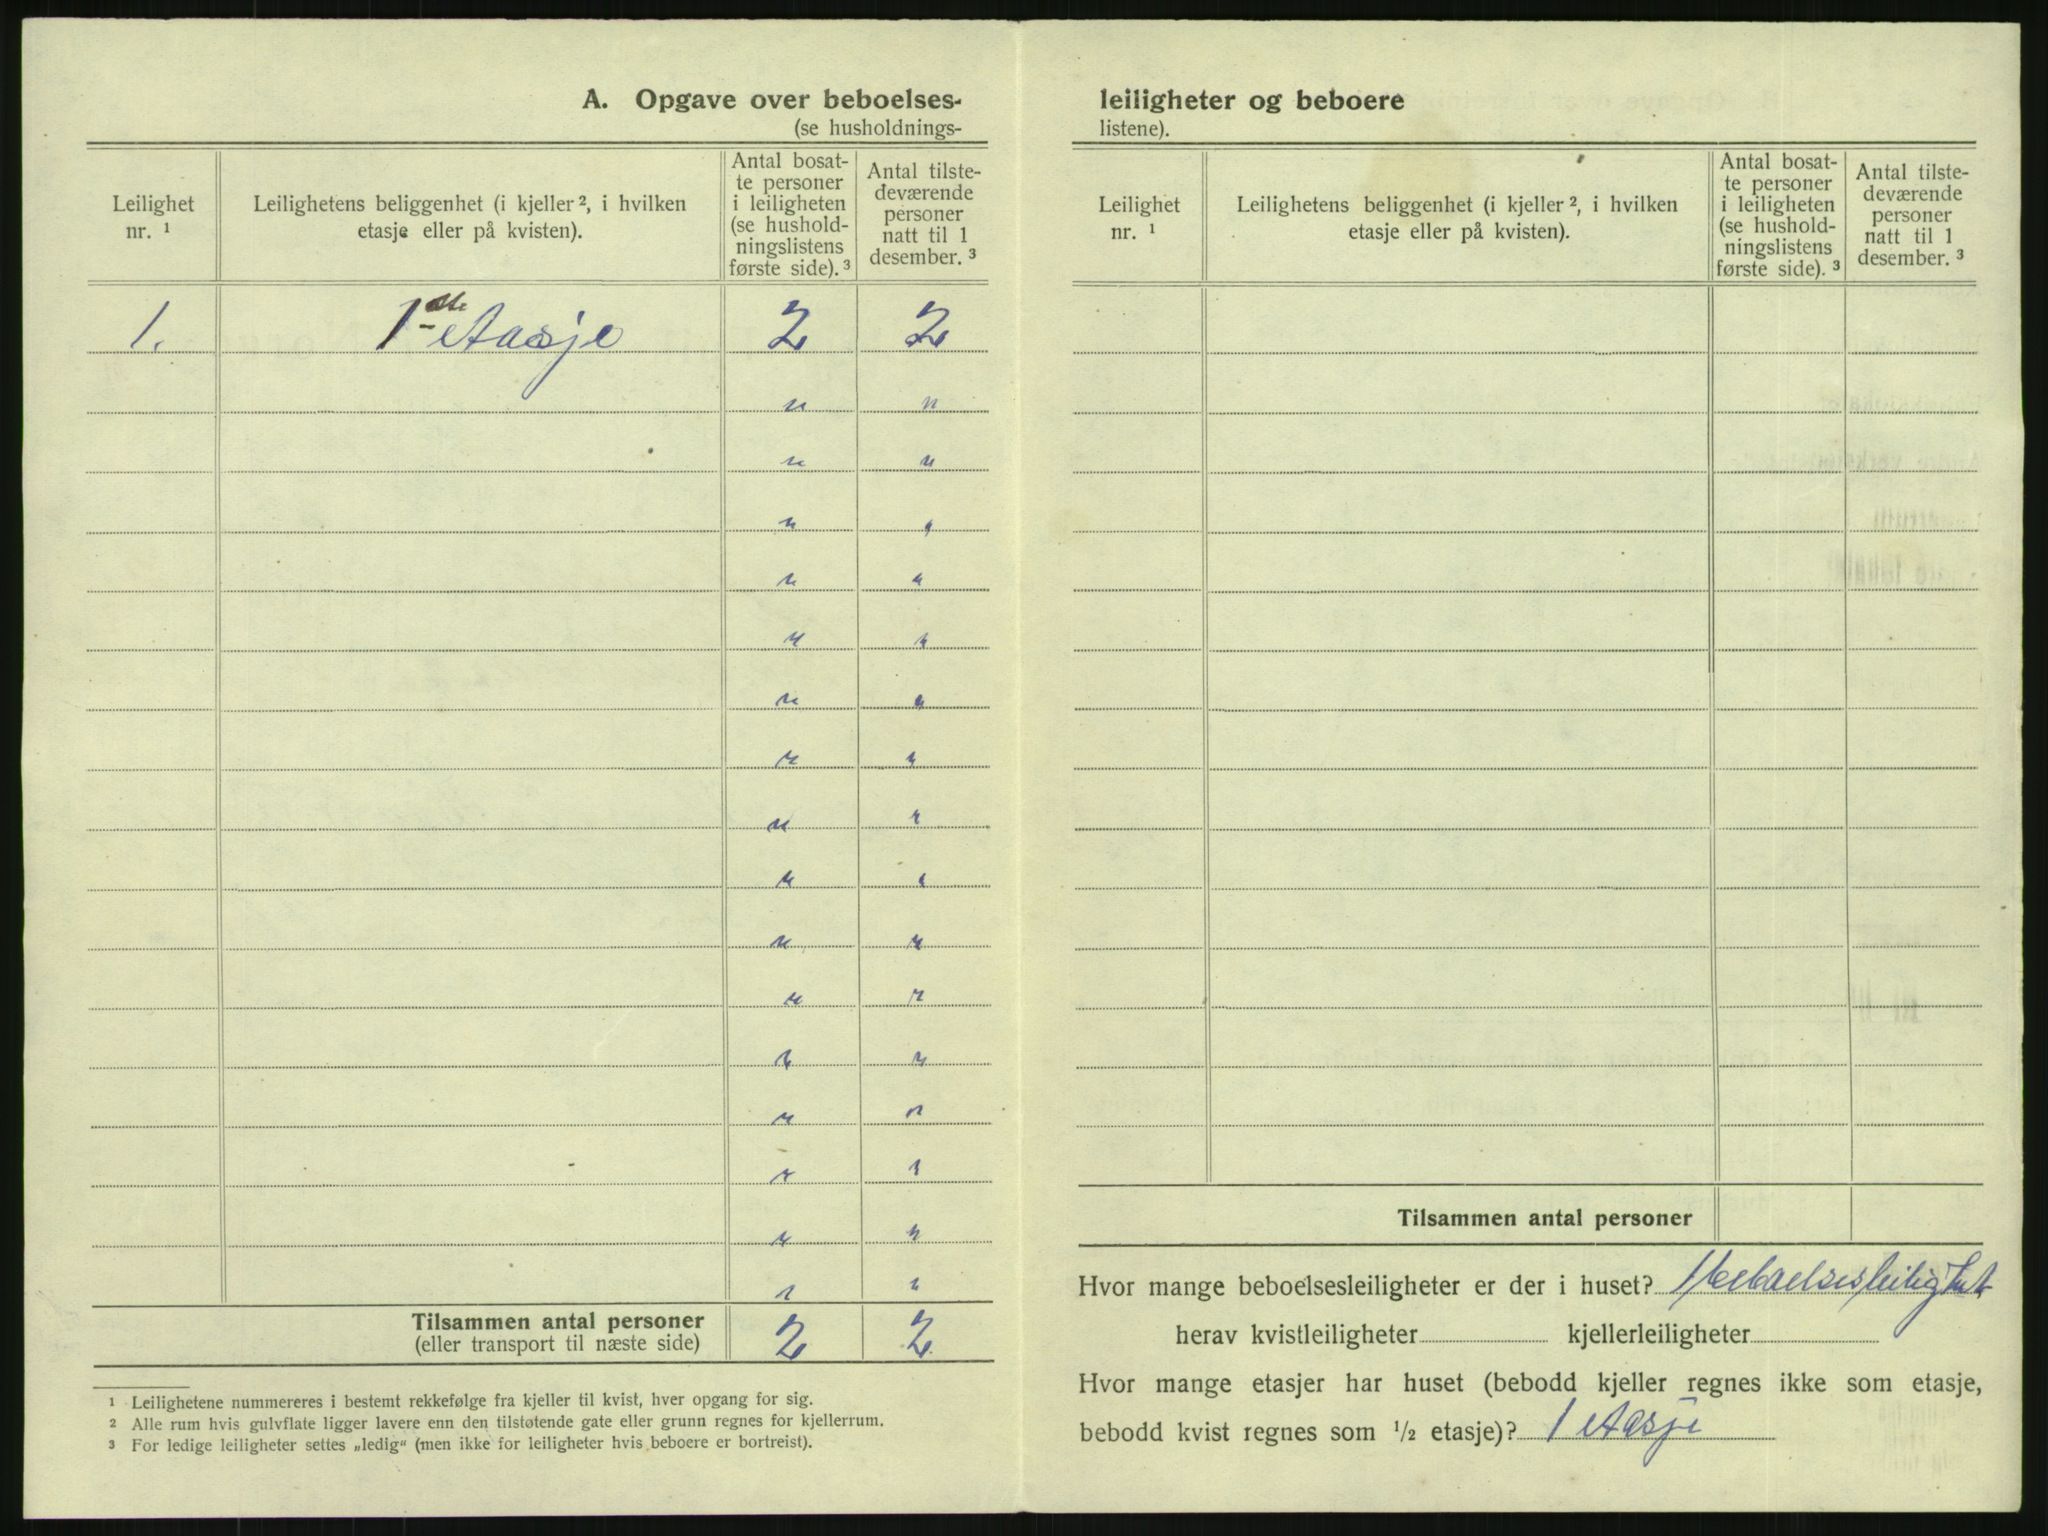 A. Opgave over beboelses-
(se husholdnings-
Leilighet nr. ¹
Leilighetens beliggenhet (i kjeller ², i hvilken etasje eller på kvisten).
Antal bosat-
te personer
i leiligheten
(se hushold-
ningslistens
første side). ³
Antal tilste-
deværende
personer
natt til 1
desember. ³
1. 1ste etasje 2 2
" "
" "
" "
" "
" "
" "
" "
" "
" "
" "
" "
" "
" "
" "
" "
" "
Tilsammen antal personer 2 2
(eller transport til næste side)
¹ Leilighetene nummereres i bestemt rekkefølge fra kjeller til kvist, hver opgang for sig.
² Alle rum hvis gulvflate ligger lavere enn den tilstøtende gate eller grunn regnes for kjellerrum.
³ For ledige leiligheter settes „ledig“ (men ikke for leiligheter hvis beboere er bortreist).
leiligheter og beboere
listene).
Leilighet nr. ¹
Leilighetens beliggenhet (i kjeller ², i hvilken etasje eller på kvisten).
Antal bosat-
te personer
i leiligheten
(se hushold-
ningslistens
første side). ³
Antal tilste-
deværende
personer
natt til 1
desember. ³
Tilsammen antal personer
Hvor mange beboelsesleiligheter er der i huset? 1 beboelsesleilighet
herav kvistleiligheter kjellerleiligheter
Hvor mange etasjer har huset (bebodd kjeller regnes ikke som etasje,
bebodd kvist regnes som ½ etasje)? 1 etasje